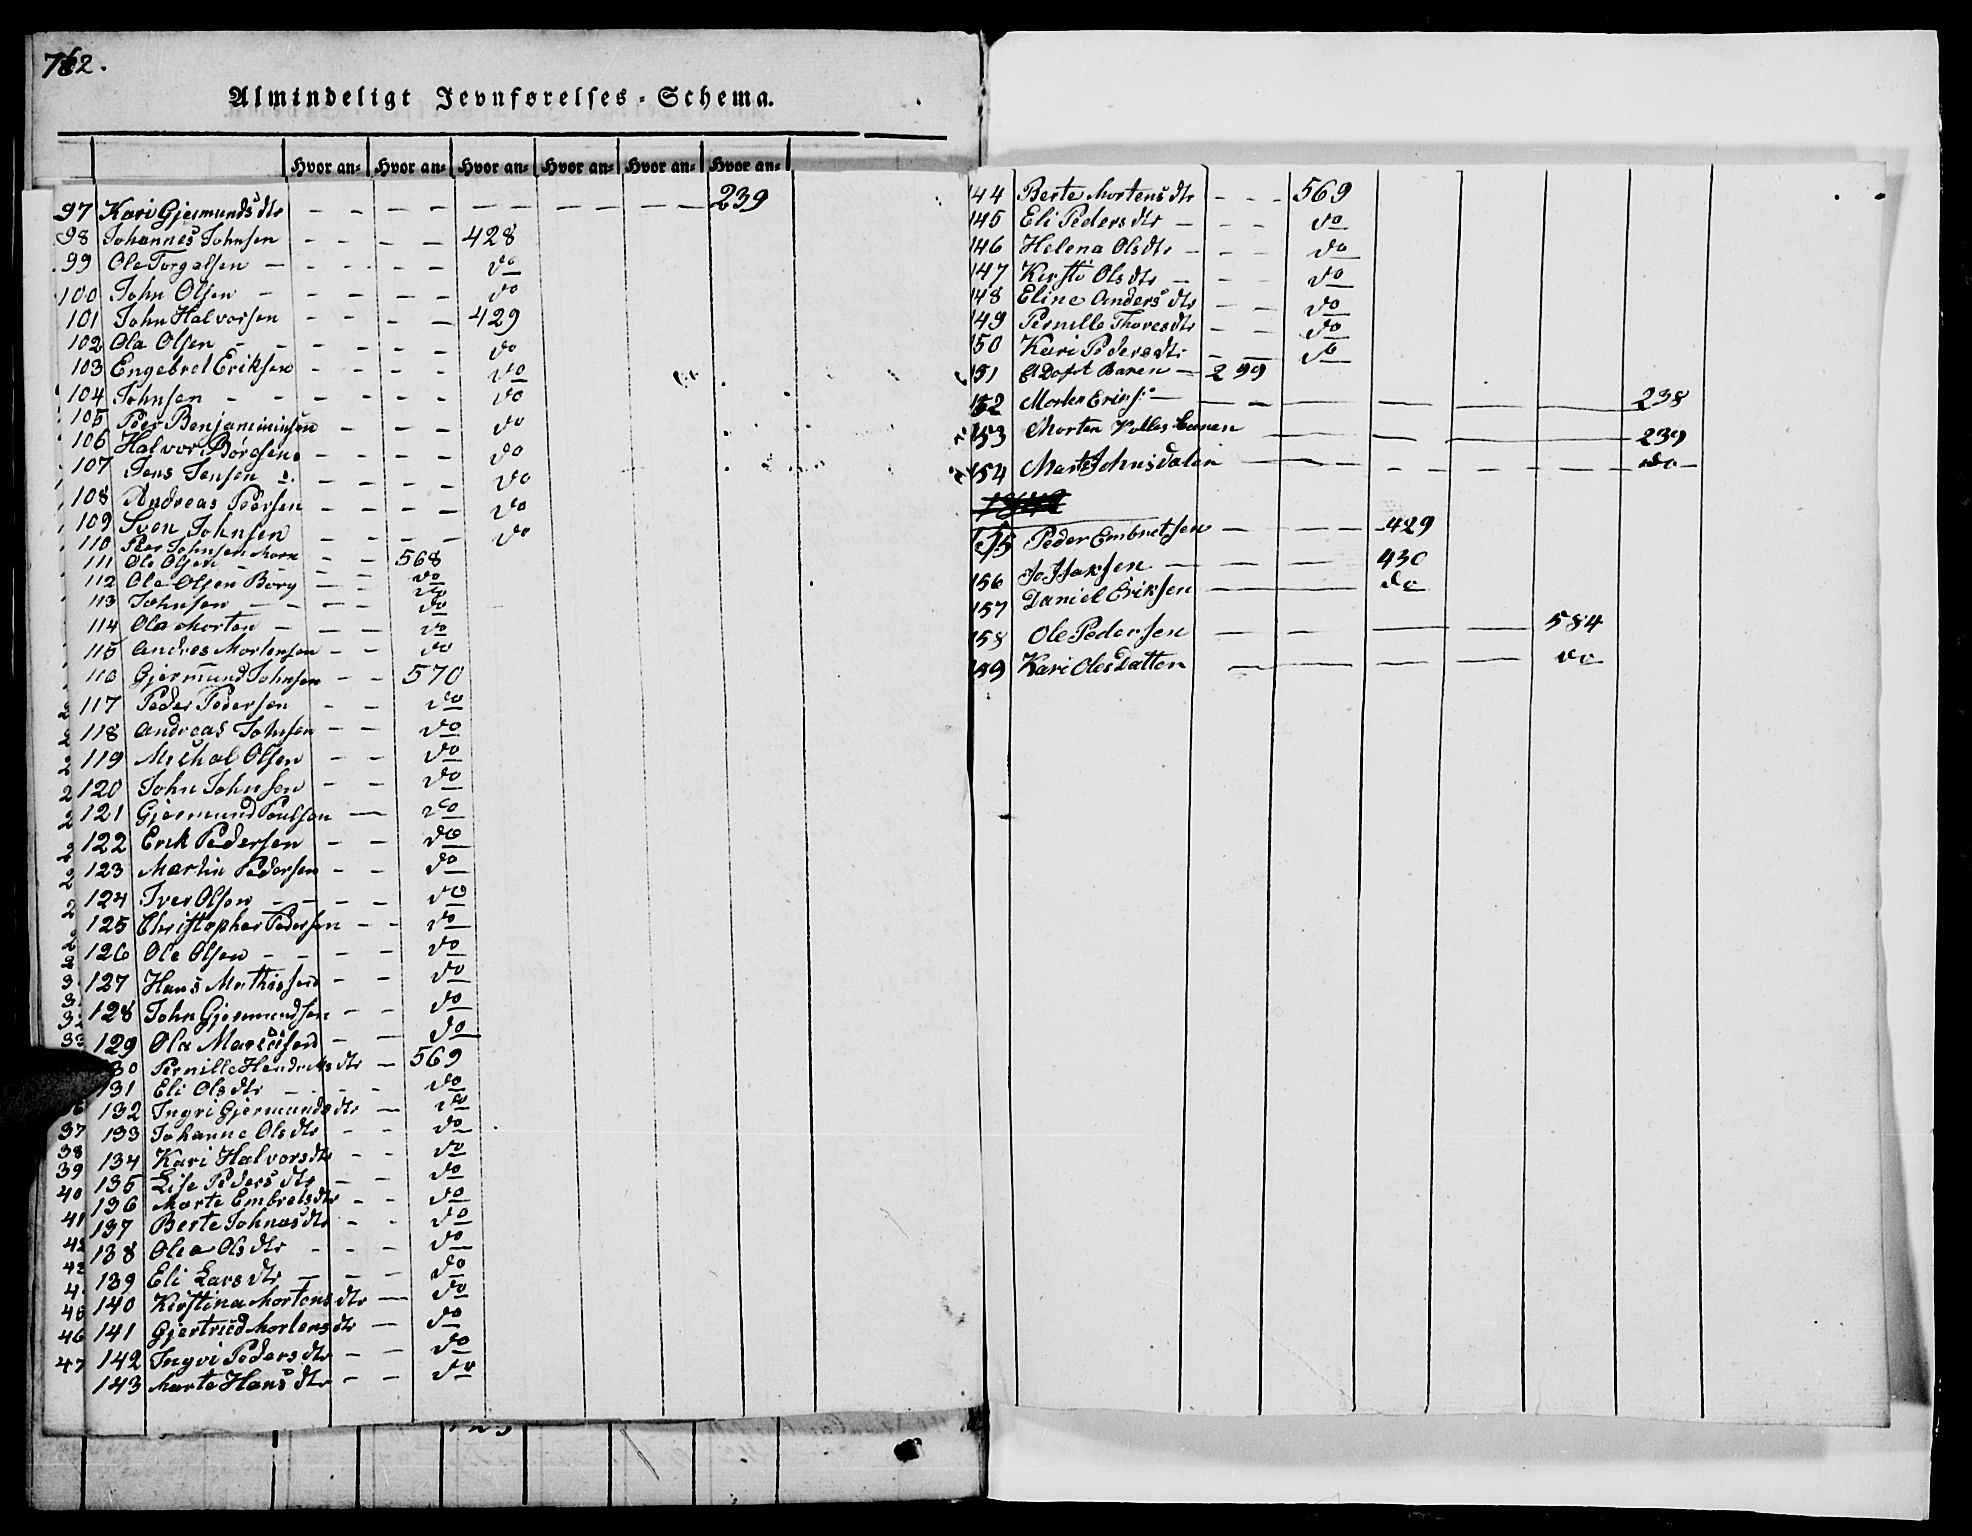 762.
Almindeligt Jevnførelses-Schema.
Hvor an- Hvor an- Hvor an- Hvor an- Hvor an- Hvor an-
97 Kari Gjermundsdtr - - - - - - - - - 239
98 Johannes Johnsen - - - - 428
99 Ole Torgalsen - - - - - do
100 John Olsen - - - - - do
101 John Halvorsen - - - - 429
102 Ola Olsen - - - - - - do
103 Engebret Eriksen - - - - do
104 Johnsen - - - - - - do
105 Peer Benjaminsen - - - do
106 Halvor Børgsen - - - - do
107 Jens Jensen - - - - do
108 Andreas Peersen - - - - do
109 Sven Johnsen - - - - do
110 Peer Johnsen Morn - - 568
111 Ole Olsen - - - - do
112 Ole Olsen Borg - - do
113 Johnsen - - - - do
114 Ola Morten - - - do
115 Andres Mortensen - - do
116 Gjermund Johnsen - - 570
117 Peder Pedersen - - do
118 Andreas Johnsen - - do
119 Michal Olsen - - do
120 John Johnsen - - do
121 Gjermund Poulsen - do
122 Erik Pedersen - - do
123 Martin Pedersen - - do
124 Iver Olsen - - - - do
125 Christopher Pedersen - - do
126 Ole Olsen - - - - do
127 Hans Mathissen - - do
128 John Gjermundsen - - do
129 Ola Mariasen - - do
30 Pernille Hendriksdtr - 569
131 Eli Olsdtr - - - - do
132 Ingri Gjermundsdtr - do
133 Johanne Olsdtr - - do
134 Kari Halvorsdtr - - do
135 Lise Pedersdtr - - do
136 Marte Embretsdtr - - do
137 Berte Johnasdtr - - do
138 Olea Olsdtr - - - do
139 Eli Larsdtr - - - do
140 Kirstina Mortensdtr - do
141 Gjertrud Mortensdtr - do
142 Ingri Pedersdtr - - do
143 Marte Hansdtr - - do
37
38
39
40
41
46
47
144 Berte Mortensdtr - - - 569
145 Eli Pedersdtr - - - do
146 Helena Olsdtr - - - do
147 Kirsti Olsdtr - - - do
148 Eline Andersdtr - - do
149 Pernille Thoresdtr - - do
150 Kari Pedersdtr - - do
151 Et Døpt Baren - 299
152 Morten Erins: - - - - - - 238
153 Morten Kolles - - - - - 239
154 Marte Johnsdaten - - - - - - - do -
155 Peder Embretsen - - - 429
156 Jo Isaksen - - - 430
157 Daniel Eriksen - - do
158 Ole Pedersen - - - - 584
159 Kari Olesdatten - - - - do